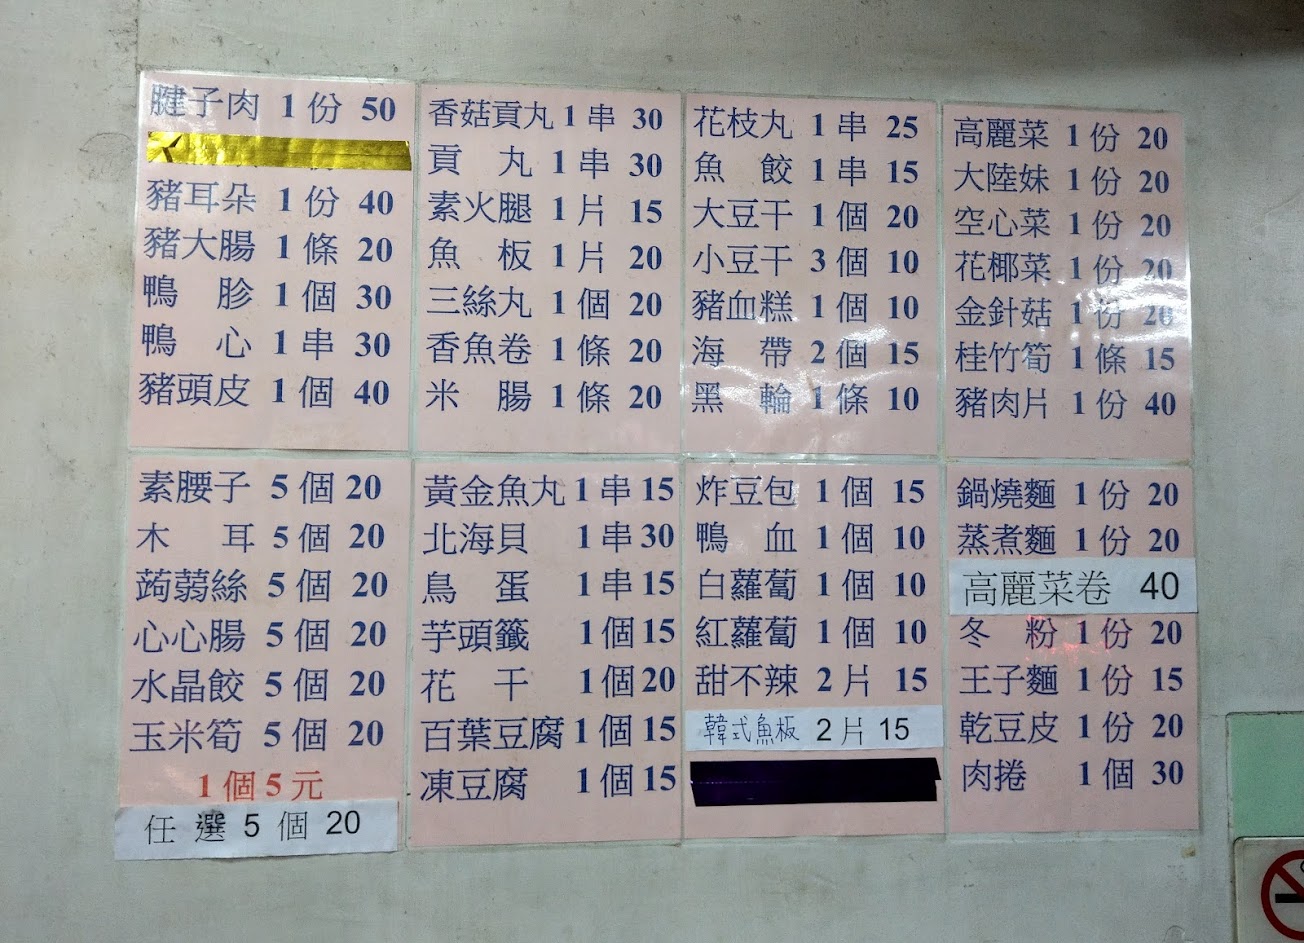 腱子肉 1 份 50
豬耳朵 1 份 40
豬大腸 1 條 20
鴨 胗 1 個 30
鴨 心 1 串 30
豬頭皮 1 個 40
香菇貢丸 1 串 30
貢 丸 1 串 30
素火腿 1 片 15
魚 板 1 片 20
三絲丸 1 個 20
香魚卷 1 條 20
米 腸 1 條 20
花枝丸 1 串 25
魚 餃 1 串 15
大豆干 1 個 20
小豆干 3 個 10
豬血糕 1 個 10
海 帶 2 個 15
黑 輪 1 條 10
高麗菜 1 份 20
大陸妹 1 份 20
空心菜 1 份 20
花椰菜 1 份 20
金針菇 1 份 20
桂竹筍 1 條 15
豬肉片 1 份 40
素腰子 5 個 20
木 耳 5 個 20
蒟蒻絲 5 個 20
心心腸 5 個 20
水晶餃 5 個 20
玉米筍 5 個 20
1 個 5 元
任 選 5 個 20
黃金魚丸 1 串 15
北海貝 1 串 30
鳥 蛋 1 串 15
芋頭籤 1 個 15
花 干 1 個 20
百葉豆腐 1 個 15
凍豆腐 1 個 15
炸豆包 1 個 15
鴨 血 1 個 10
白蘿蔔 1 個 10
紅蘿蔔 1 個 10
甜不辣 2 片 15
韓式魚板 2 片 15
鍋燒麵 1 份 20
蒸煮麵 1 份 20
高麗菜卷 40
冬 粉 1 份 20
王子麵 1 份 15
乾豆皮 1 份 20
肉捲 1 個 30